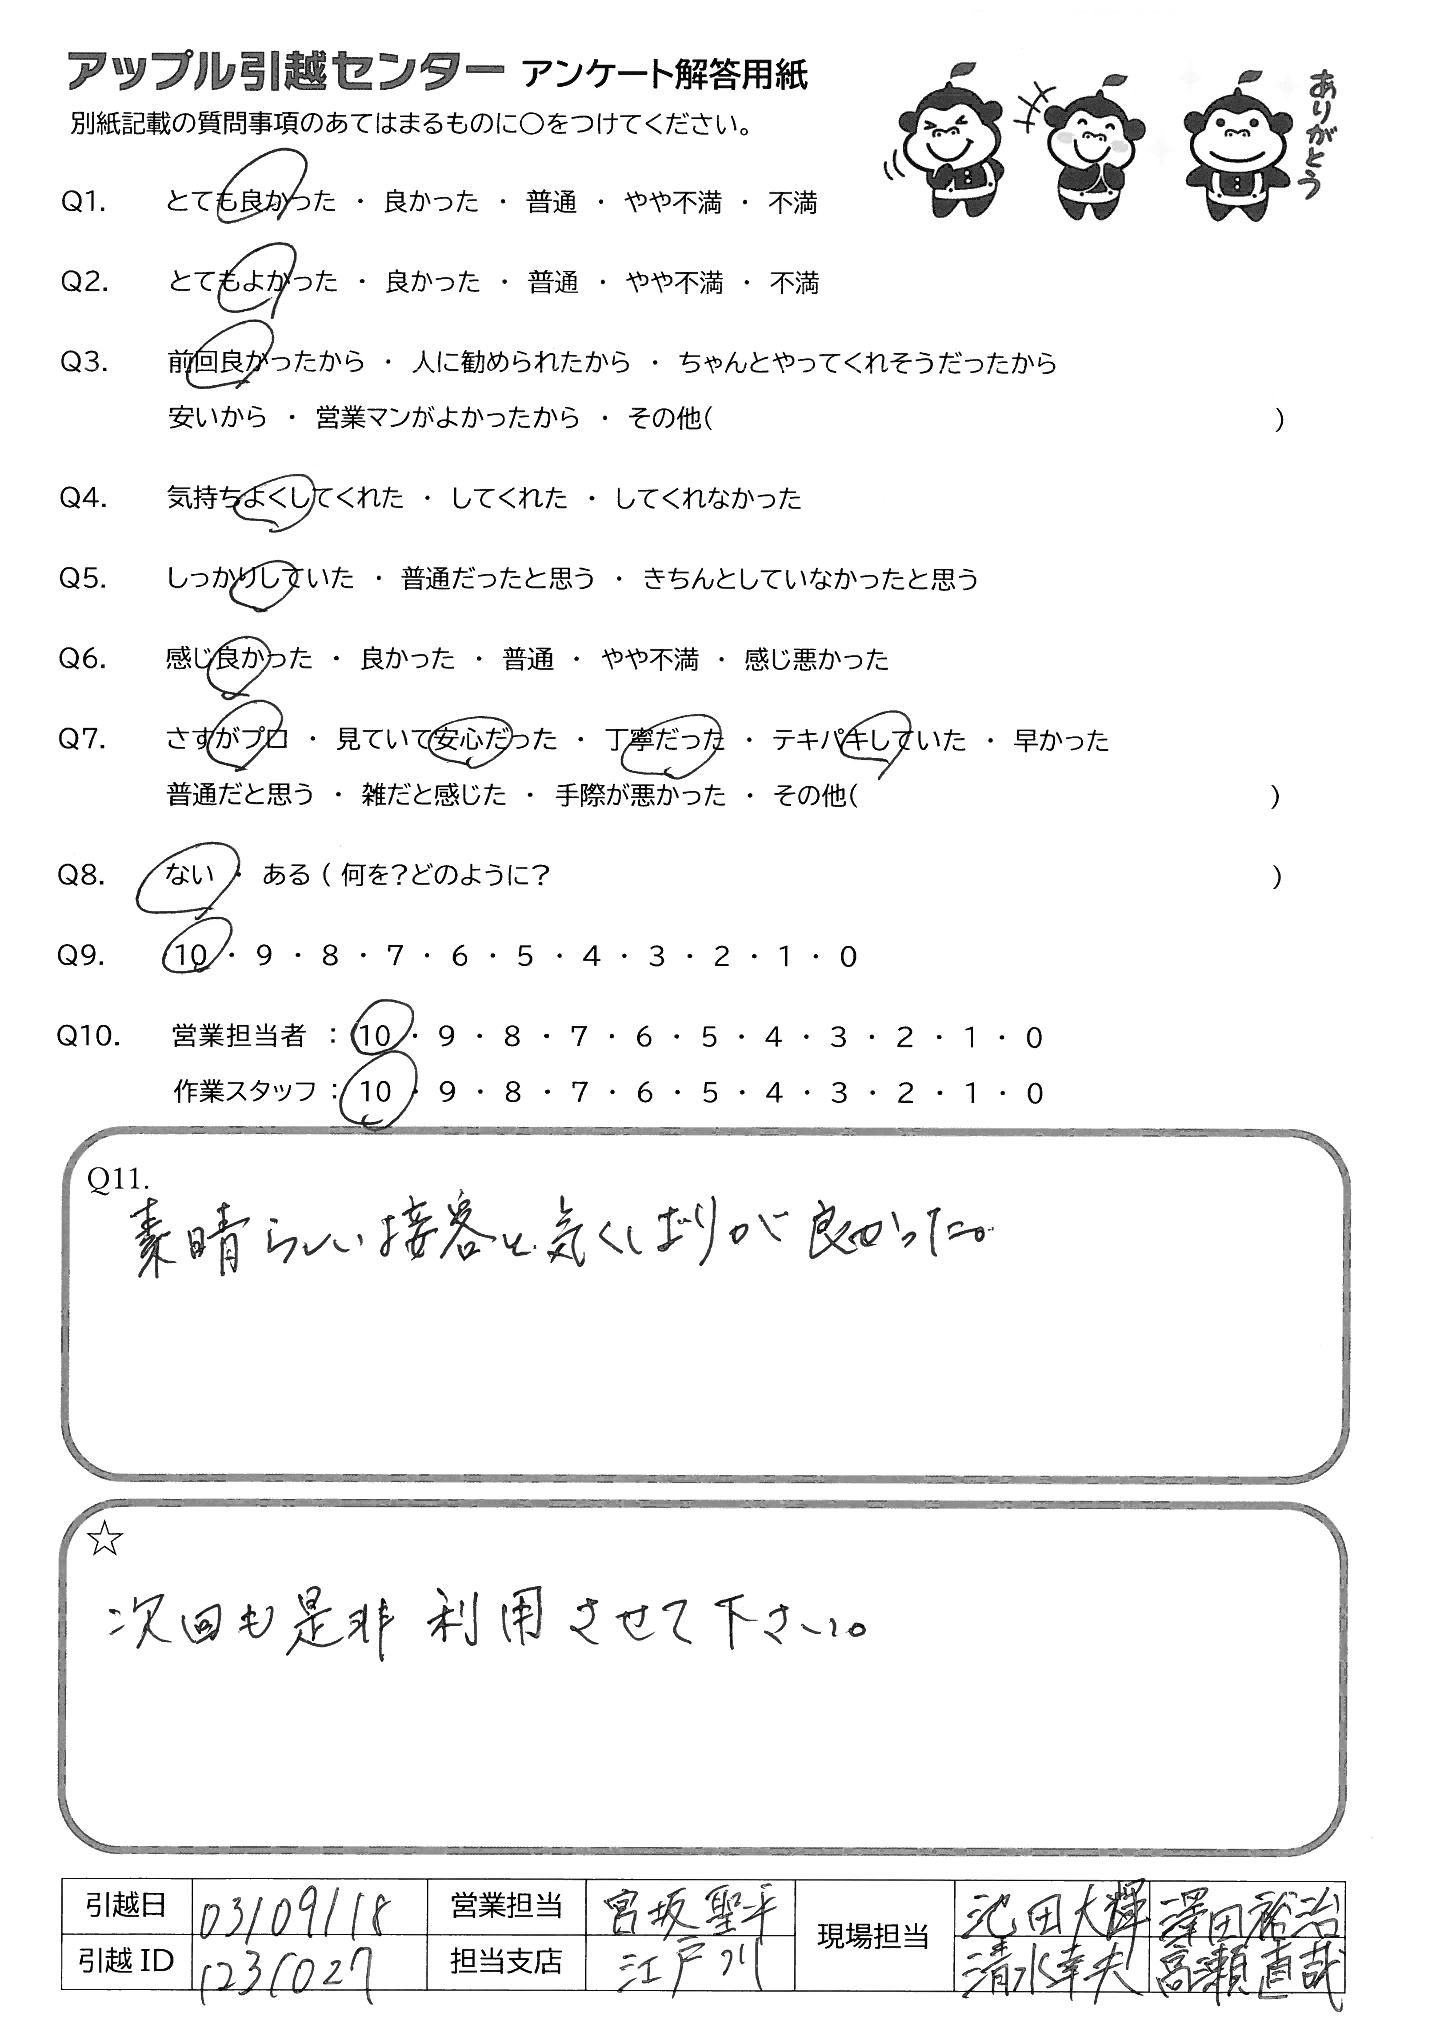 アップル引越センター アンケート解答用紙
別紙記載の質問事項のあてはまるものに〇をつけてください。
ありがとう
Q1. とても良かった ・ 良かった ・ 普通 ・ やや不満 ・ 不満
Q2. とてもよかった ・ 良かった ・ 普通 ・ やや不満 ・ 不満
Q3. 前回良かったから ・ 人に勧められたから ・ ちゃんとやってくれそうだったから
安いから ・ 営業マンがよかったから ・ その他( )
Q4. 気持ちよくしてくれた ・ してくれた ・ してくれなかった
Q5. しっかりしていた ・ 普通だったと思う ・ きちんとしていなかったと思う
Q6. 感じ良かった ・ 良かった ・ 普通 ・ やや不満 ・ 感じ悪かった
Q7. さすがプロ ・ 見ていて安心だった ・ 丁寧だった ・ テキパキしていた ・ 早かった
普通だと思う ・ 雑だと感じた ・ 手際が悪かった ・ その他( )
Q8. ない ・ ある ( 何を?どのように? )
Q9. 10 ・ 9 ・ 8 ・ 7 ・ 6 ・ 5 ・ 4 ・ 3 ・ 2 ・ 1 ・ 0
Q10. 営業担当者 : 10 ・ 9 ・ 8 ・ 7 ・ 6 ・ 5 ・ 4 ・ 3 ・ 2 ・ 1 ・ 0
作業スタッフ : 10 ・ 9 ・ 8 ・ 7 ・ 6 ・ 5 ・ 4 ・ 3 ・ 2 ・ 1 ・ 0
Q11.
素晴らしい接客と気くばりが良かった。
☆
次回も是非利用させて下さい。
引越日 03/09/18 営業担当 宮坂聖平 現場担当 池田大輝 澤田裕治
引越ID 1231027 担当支店 江戸川 清水幸夫 高瀬直哉